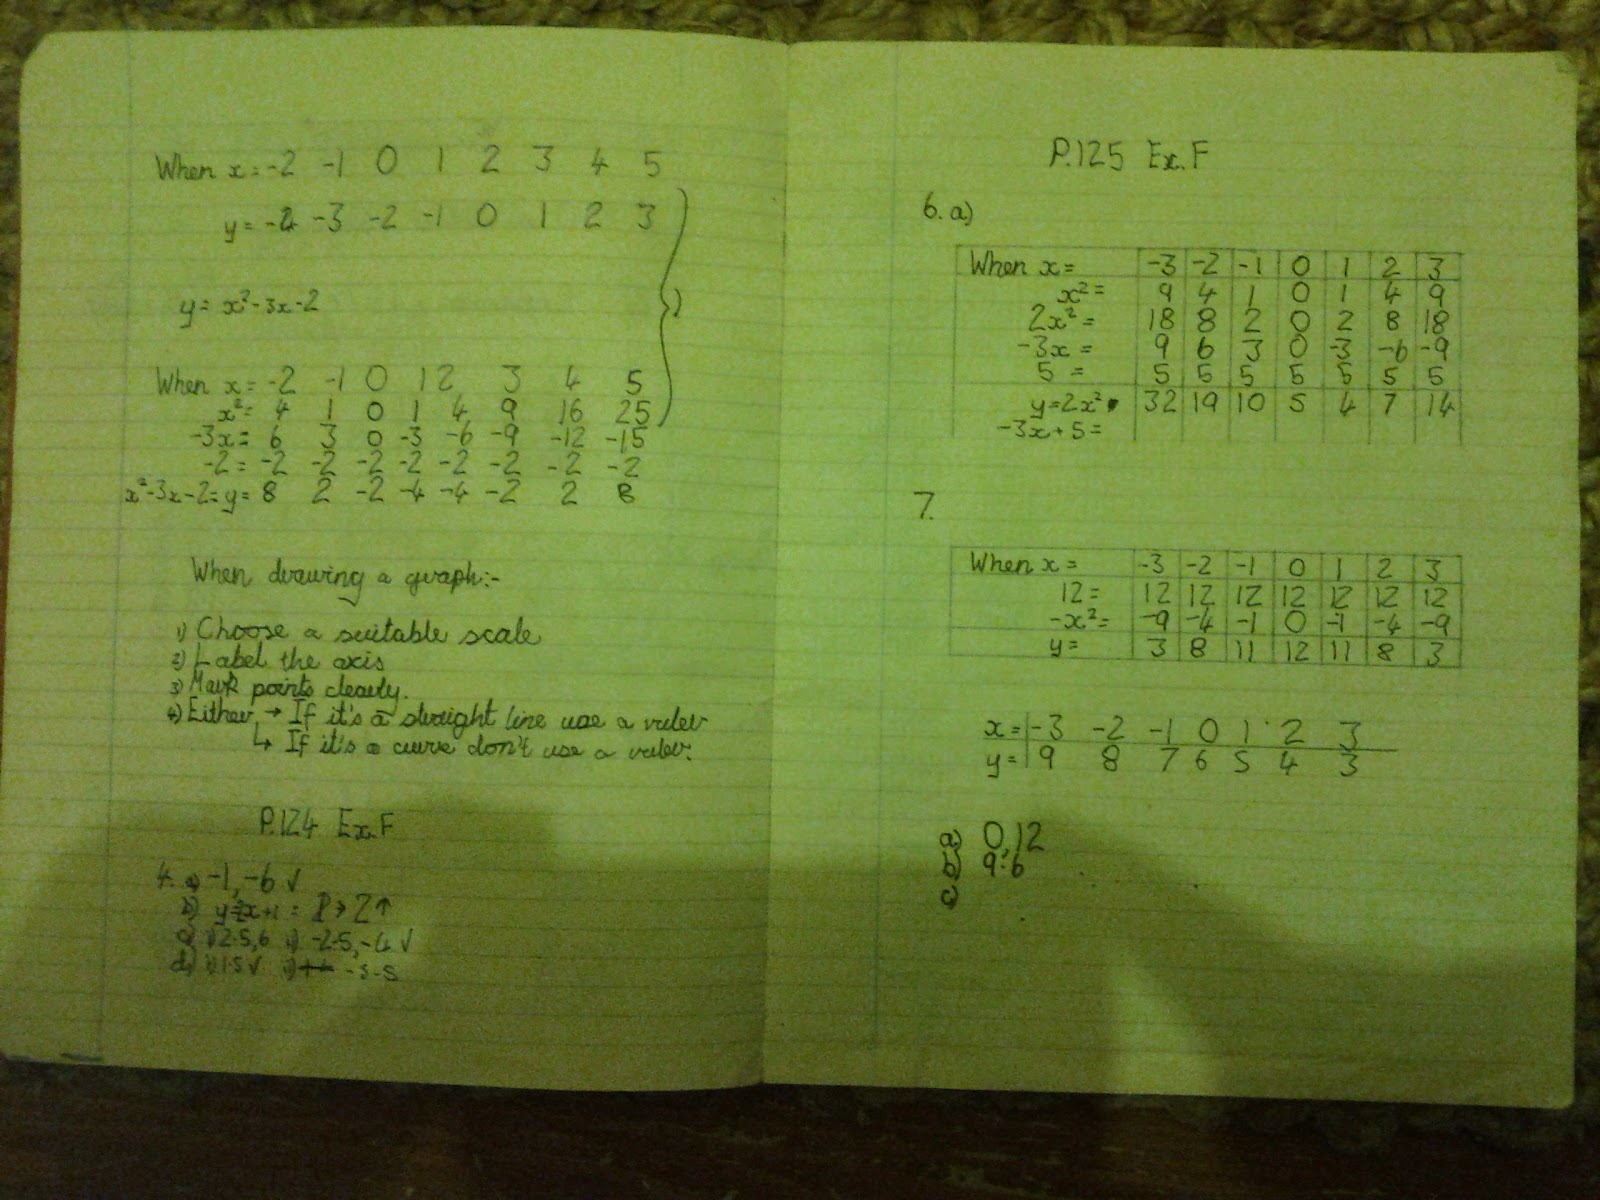 When x = -2 -1 0 1 2 3 4 5
y = -3 -2 -1 0 1 2 3
y = x²-3x-2
When x = -2 -1 0 1 2 3 4 5
x² = 4 1 0 1 4 9 16 25
-3x = 6 3 0 -3 -6 -9 -12 -15
-2 = -2 -2 -2 -2 -2 -2 -2 -2
x²-3x-2 = y = 8 2 -2 -4 -4 -2 2 8
When drawing a graph:-
1) Choose a suitable scale
2) Label the axis
3) Mark points clearly.
4) Either → If it's a straight line use a ruler
↳ If it's a curve don't use a ruler.
P.124 Ex.F
4. a) -1, -6 ✓
b)
c) i) 2.5, 6 ii) -2.5, -4 ✓
d) i) 1.5 ✓ ii)
P.125 Ex.F
6. a)
When x = -3 -2 -1 0 1 2 3
x² = 9 4 1 0 1 4 9
2x² = 18 8 2 0 2 8 18
-3x = 9 6 3 0 -3 -6 -9
5 = 5 5 5 5 5 5 5
y = 2x² 32 19 10 5 4 7 14
-3x + 5 =
7.
When x = -3 -2 -1 0 1 2 3
12 = 12 12 12 12 12 12 12
-x² = -9 -4 -1 0 -1 -4 -9
y = 3 8 11 12 11 8 3
x = -3 -2 -1 0 1 2 3
y = 9 8 7 6 5 4 3
a) 0,12
b) 9.6
c)